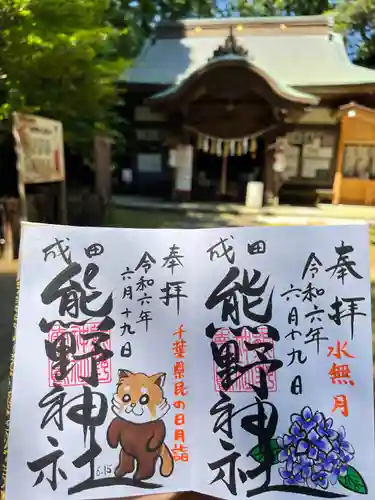 奉拝
令和六年
六月十九日
千葉県民の日月詣
成田
熊野神社
6.15
奉拝
令和六年
六月十九日
水無月
成田
熊野神社